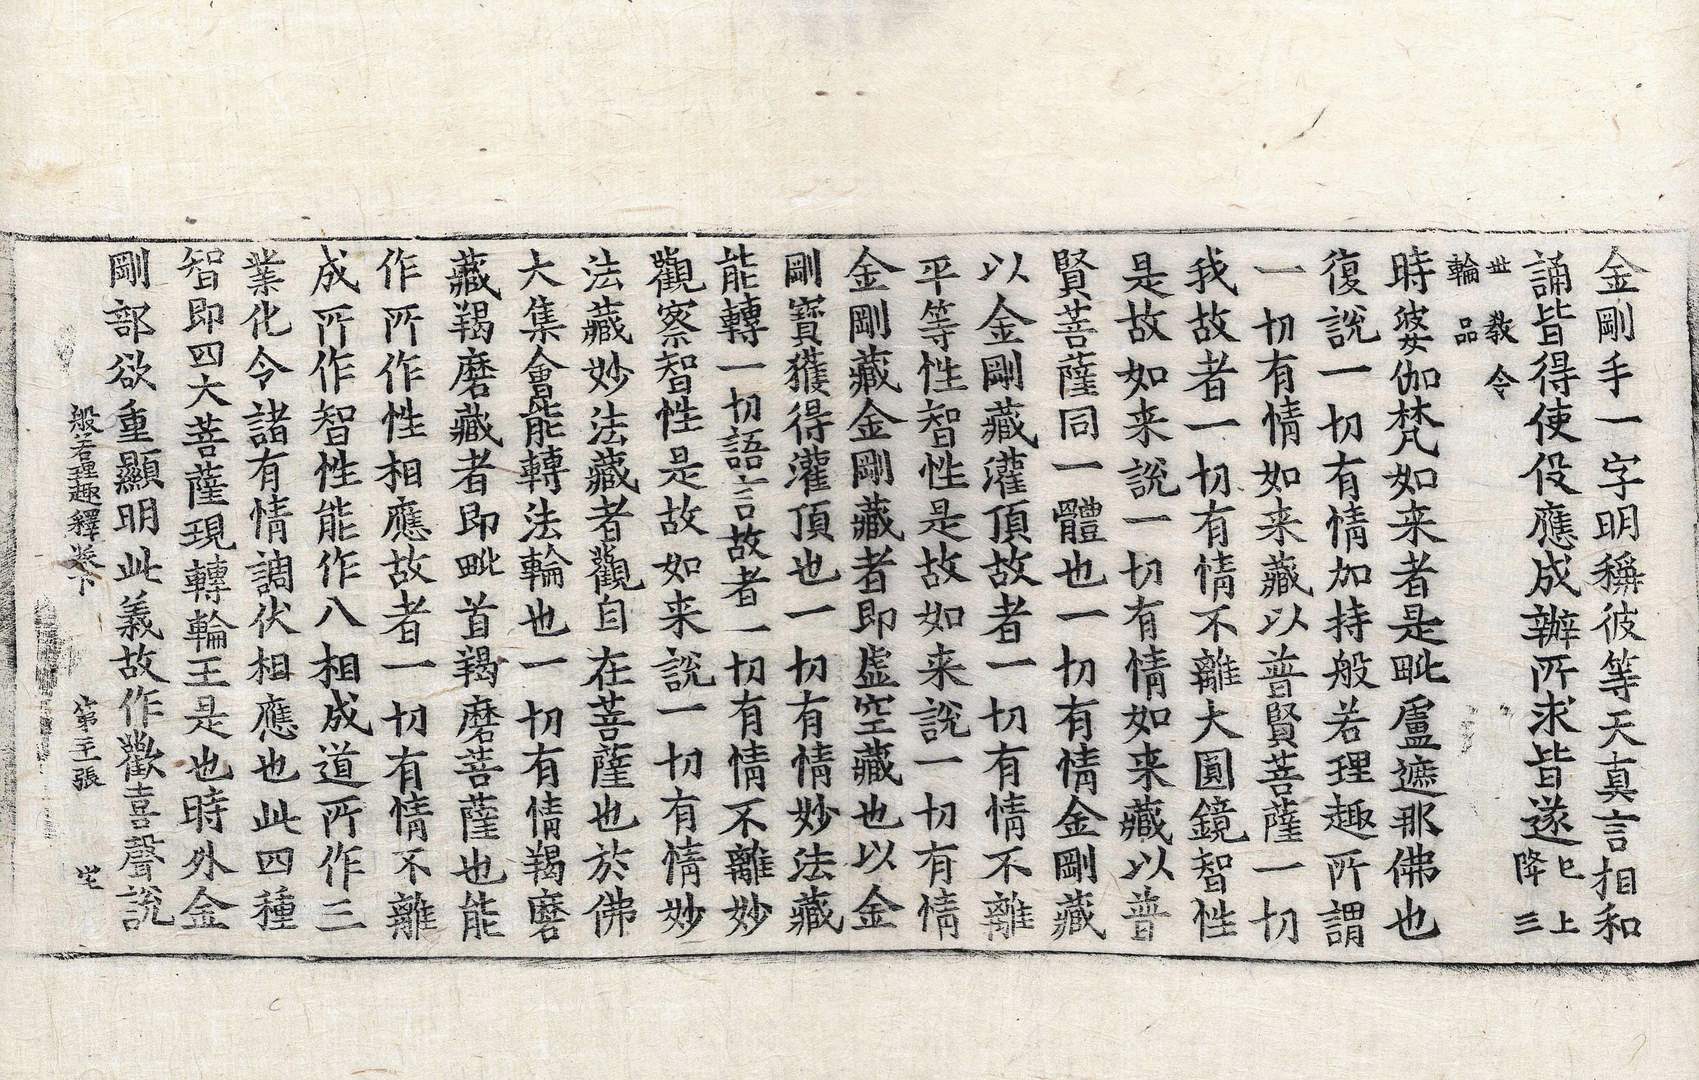 金剛手一字明稱彼等天真言相和
誦皆得使役應成辦所求皆遂已上降三
世教令輪品
時婆伽梵如来者是毗盧遮那佛也
復說一切有情加持般若理趣所謂
一切有情如来藏以普賢菩薩一切
我故者一切有情不離大圓鏡智性
是故如来說一切有情如来藏以普
賢菩薩同一體也一切有情金剛藏
以金剛藏灌頂故者一切有情不離
平等性智性是故如来說一切有情
金剛藏金剛藏者即虛空藏也以金
剛寶獲得灌頂也一切有情妙法藏
能轉一切語言故者一切有情不離妙
觀察智性是故如来說一切有情妙
法藏妙法藏者觀自在菩薩也於佛
大集會能轉法輪也一切有情羯磨
藏羯磨藏者即毗首羯磨菩薩也能
作所作性相應故者一切有情不離
成所作智性能作八相成道所作三
業化令諸有情調伏相應也此四種
智即四大菩薩現轉輪王是也時外金
剛部欲重顯明此義故作歡喜聲說
般若理趣釋卷下 第三張